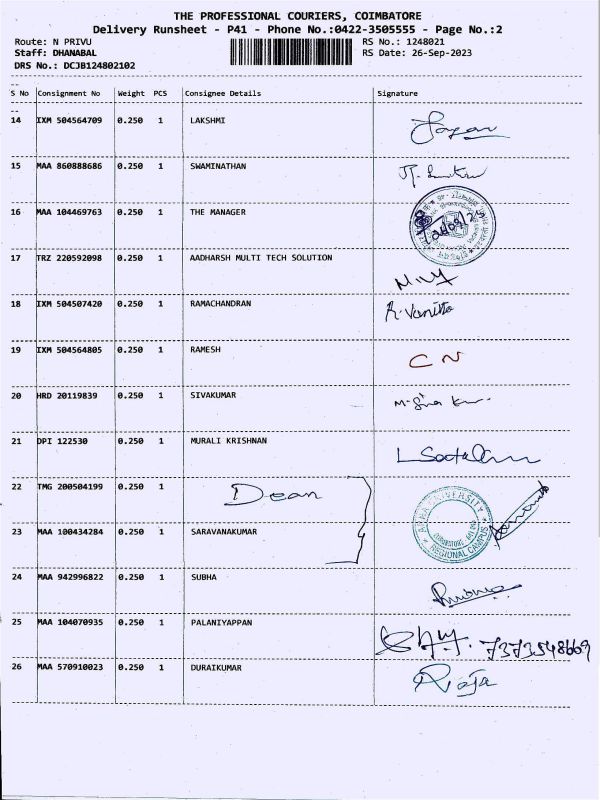 THE PROFESSIONAL COURIERS, COIMBATORE
Delivery Runsheet - P41 - Phone No.:0422-3505555 - Page No.:2
Route: N PRIVU RS No.: 1248021
Staff: DHANABAL RS Date: 26-Sep-2023
DRS No.: DCJB124802102
S No Consignment No Weight PCS Consignee Details Signature
14 IXM 504564709 0.250 1 LAKSHMI
15 MAA 860888686 0.250 1 SWAMINATHAN
16 MAA 104469763 0.250 1 THE MANAGER
17 TRZ 220592098 0.250 1 AADHARSH MULTI TECH SOLUTION
18 IXM 504507420 0.250 1 RAMACHANDRAN R. Vanitta
19 IXM 504564805 0.250 1 RAMESH CN
20 HRD 20119839 0.250 1 SIVAKUMAR
21 DPI 122530 0.250 1 MURALI KRISHNAN
22 TMG 200504199 0.250 1 Dean
UNIVERSITY
REGIONAL CAMPUS
23 MAA 100434284 0.250 1 SARAVANAKUMAR
24 MAA 942996822 0.250 1 SUBHA
25 MAA 104070935 0.250 1 PALANIYAPPAN 7373548669
26 MAA 570910023 0.250 1 DURAIKUMAR Raja